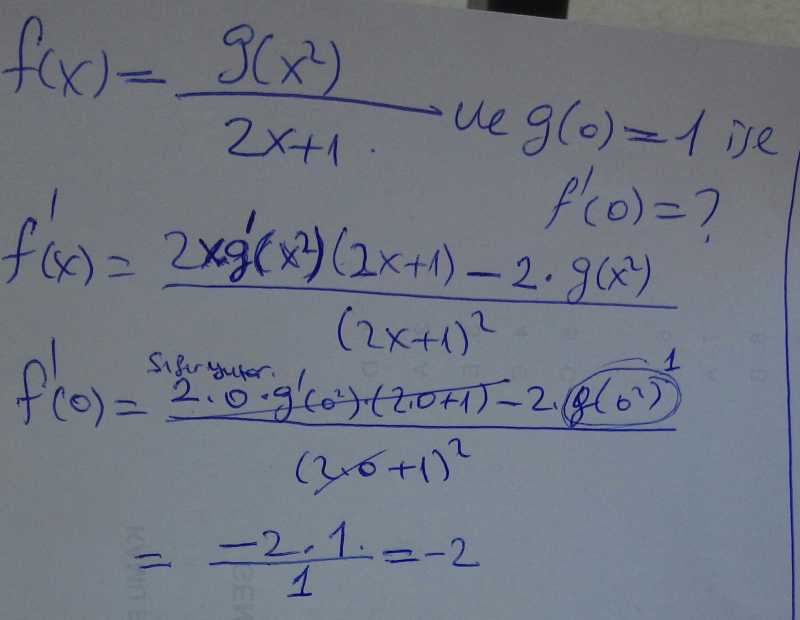 f(x) = g(x²) / 2x+1 ve g(0) = 1 ise
f'(0) = ?
f'(x) = 2xg'(x²)(2x+1) - 2·g(x²) / (2x+1)²
Sıfır yutar.
f'(0) = 2·0·g'(0²)·(2·0+1) - 2·g(0²) / (2·0+1)²
1
= -2·1 / 1 = -2